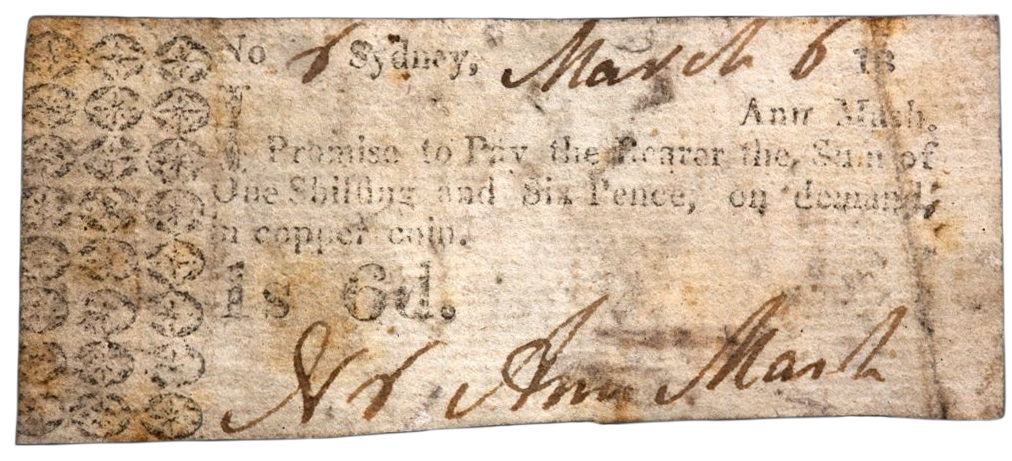 No 8 Sydney, March 6 18
Ann Mash.
I Promise to Pay the Bearer the, Sum of
One Shilling and Six Pence, on demand,
in copper coin.
1s 6d.
Ann Mash